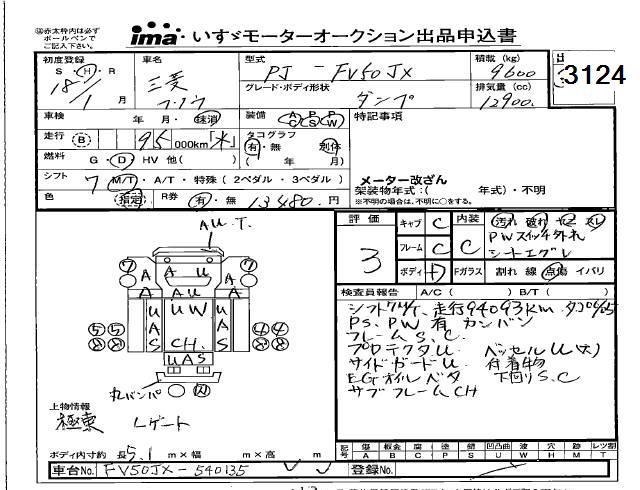 ㊟赤太枠内は必ず
ボールペンで
ご記入下さい。
ima いすゞモーターオークション出品申込書
3124
初度登録 車名 型式 積載 (kg)
S・H・R 三菱 PJ-FV50JX 9600
グレード・ボディ形状 排気量 (cc)
18年 1月 フソウ ダンプ 12900
車検 年・月・抹消 装備 AC PS PW 特記事項
走行 B 95,000km タコグラフ
有・無 剥体
燃料 G・D・HV 他( ) ( 年 月)
シフト 7 M/T・A/T・特殊 (2ペダル・3ペダル) メーター改ざん
架装物年式:( 年式)・不明
※不明の場合は、不明に○をする。
色 指定 R券 有・無 13480円
A U.T.
評価 3
キャブ C 内装 C 汚れ 破れ コゲ スレ
フレーム C PWスイッチ外れ
シートエグレ
ボディ Fガラス 割れ 線 点傷 イバリ
検査員報告 A/C( ) B/T( )
走行94093Km
PS、PW 有 カンバン
フレームS.C.
プロテクタU ベッセルU(大)
サイドガードU 付着物
EGオイルベタ 下回りS.C
サブフレームCH
丸バンパ
上物情報
極東 Lゲート
ボディ内寸約 長5.1 m×幅 m×高 m
記号 傷 板金 腐 塗 錆 凹凸曲 波 穴 跡 レツ割
A B C P S U W H M T
車台No. FV50JX-540135
登録No.